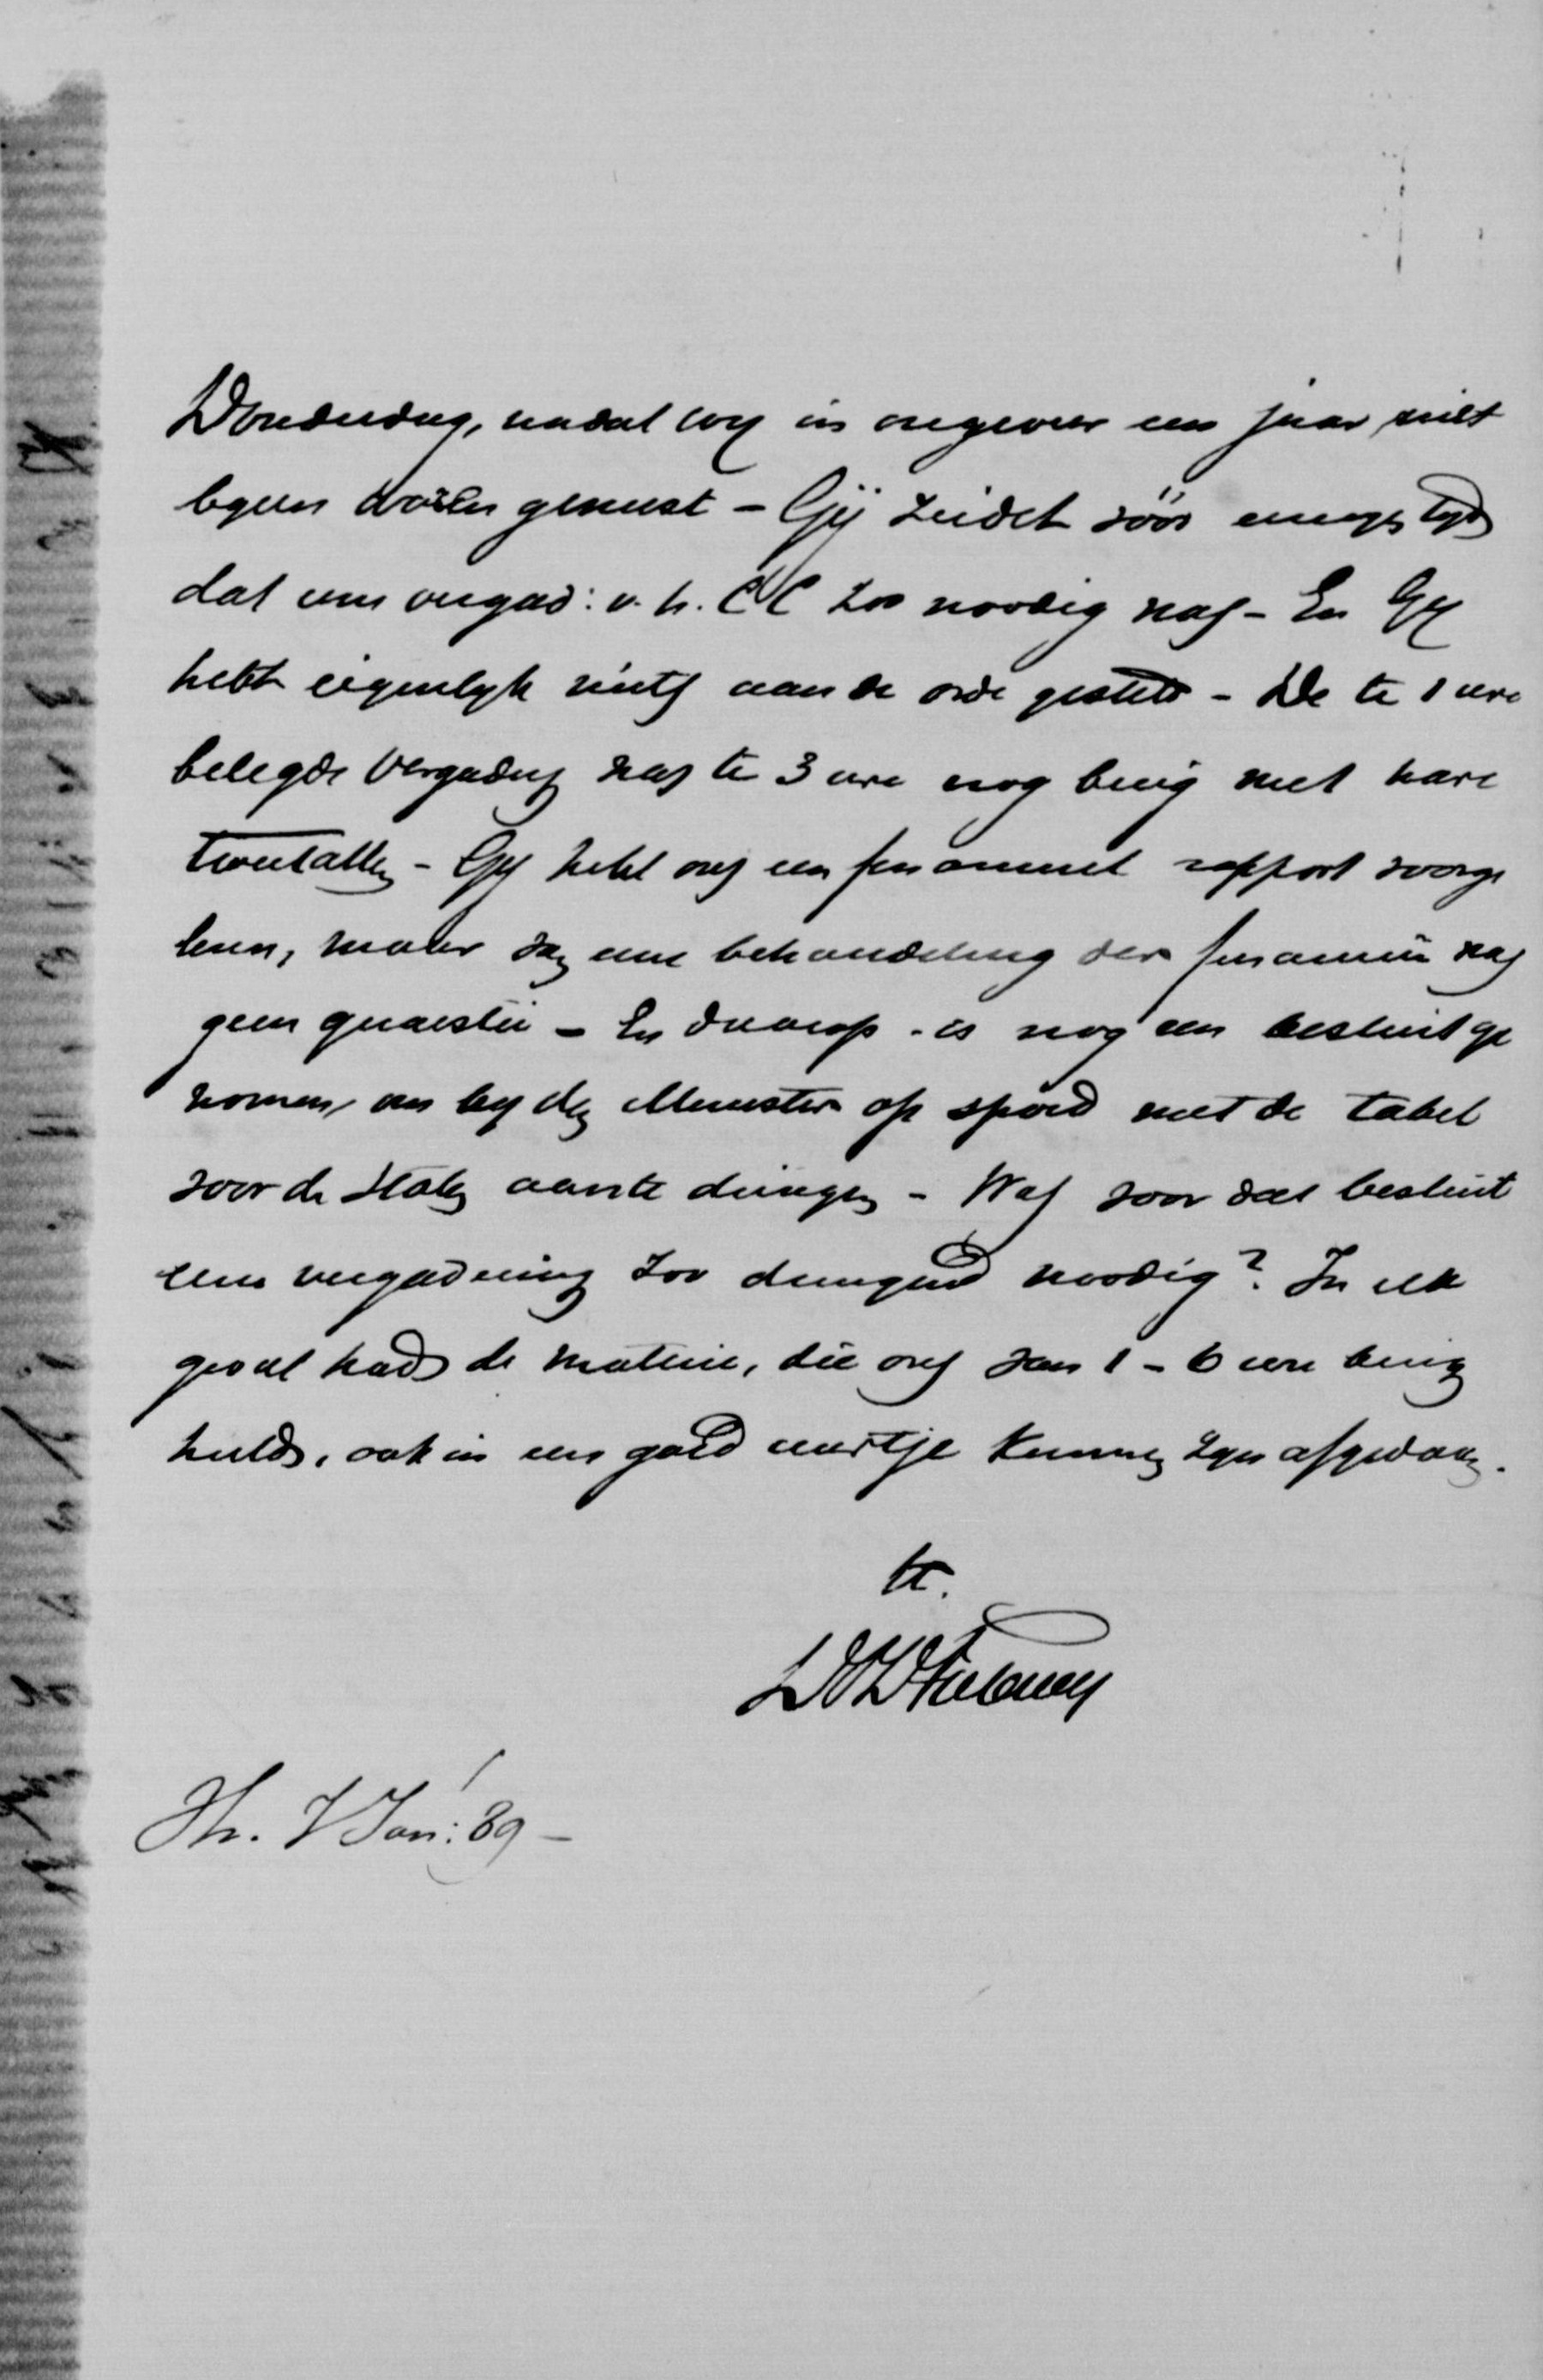 Donderdag, nadat wy in ongeveer een jaar niet
byeen waren geweest - Gij zeidet vóór eenigen tyd
dat eene vergad: v. h. CC zoo noodig was - En Gy
hebt eigenlyk niets aan de orde gesteld - De te 1 ure
belegde Vergadering was te 3 ure nog bezig met hare
tweetallen - Gy hebt ons een financieel rapport voorge
lezen, maar van eene behandeling der financiën was
geen quaestie - En daarop is nog een besluit ge
nomen, om by den Minister op spoed met de tabel
voor de Staten aan te dringen - Was voor dat besluit
eene vergadering zoo dringend noodig? In elk
geval had de materie, die ons van 1 - 6 ure bezig
hield, ook in een goed uurtje kunnen zyn afgedaan.
tt.
Hr. 7 Jan: 89 -